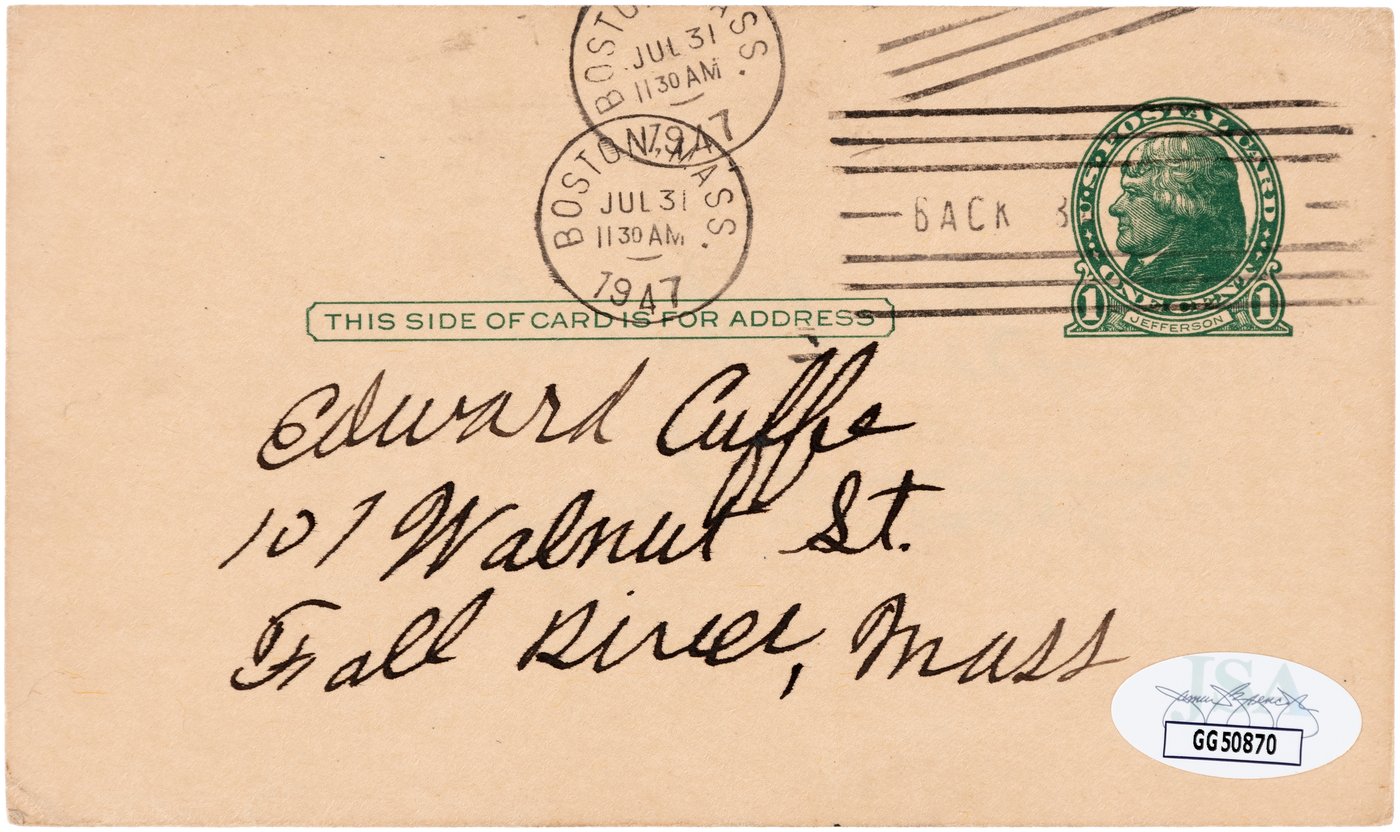 BOSTON, MASS.
JUL 31
11 30 AM
1947
BOSTON, MASS.
JUL 31
11 30 AM
1947
BACK
U.S. POSTAL CARD
ONE CENT
1 JEFFERSON 1
THIS SIDE OF CARD IS FOR ADDRESS
Edward Cuffe
107 Walnut St.
Fall River, Mass
JSA
GG50870